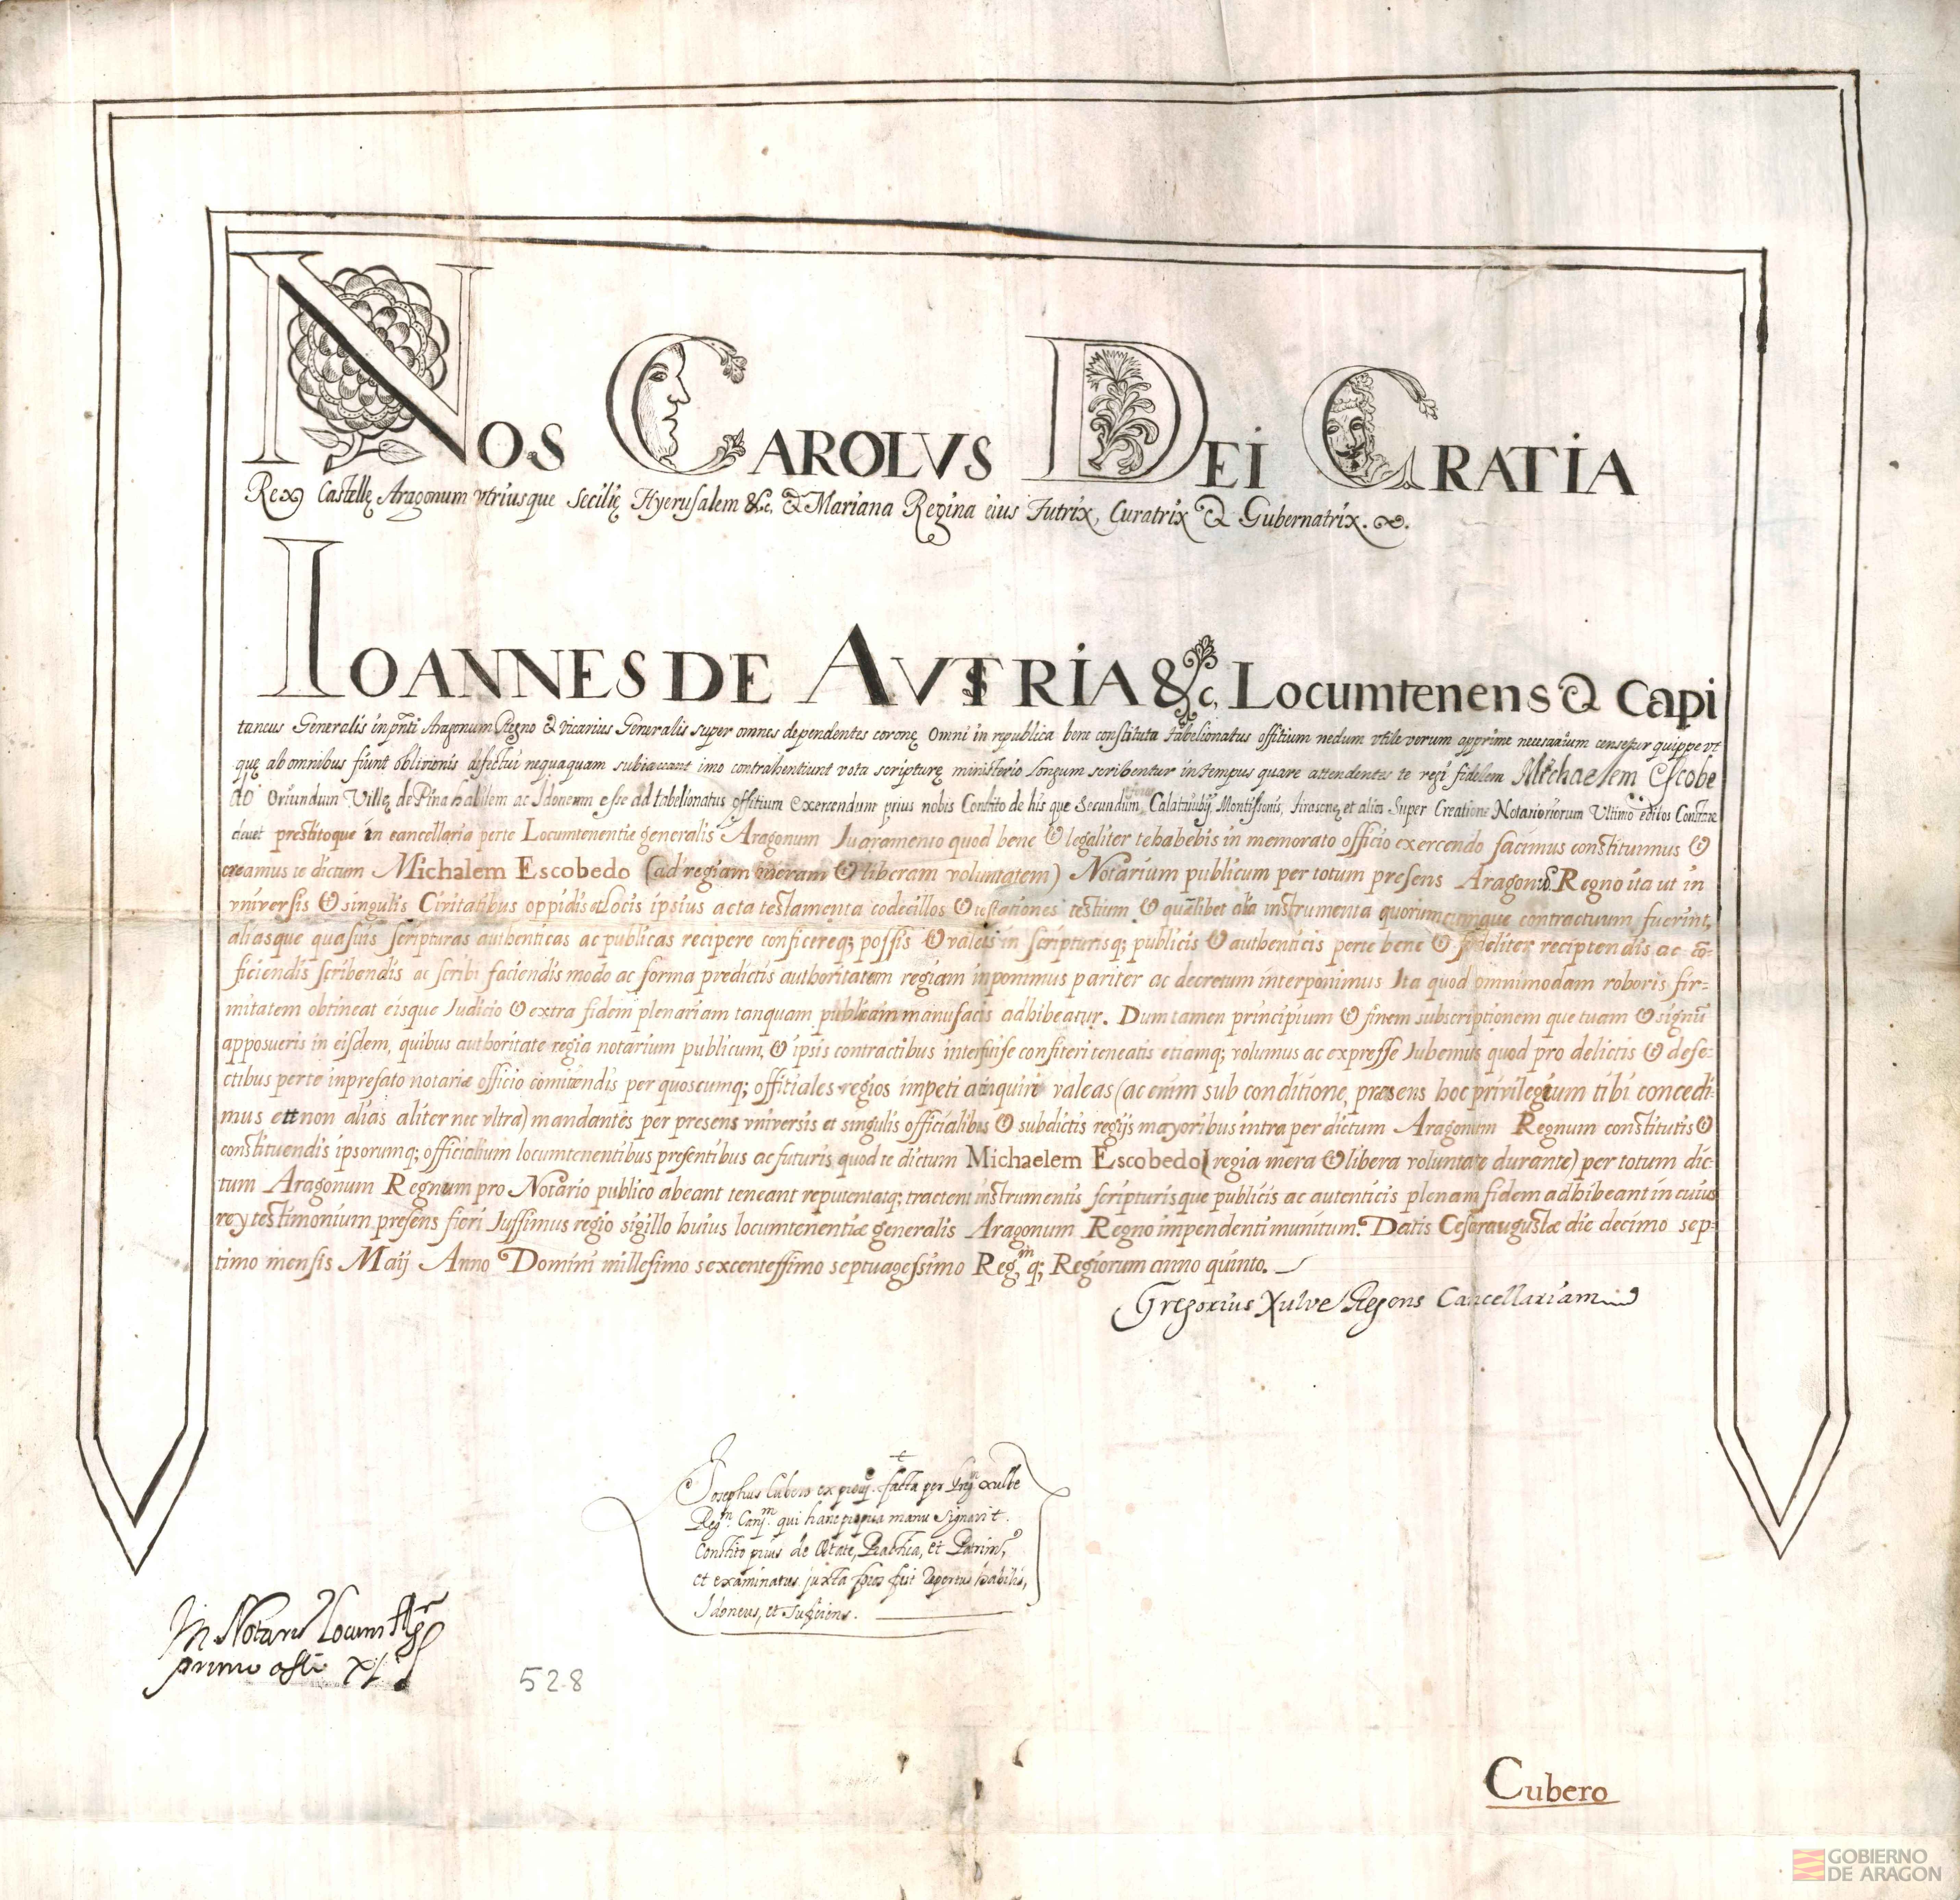 NOS CAROLVS DEI GRATIA
Rex Castellę Aragonum vtriusque Secilię Hyerusalem &c. & Mariana Regina eius Tutrix, Curatrix & Gubernatrix. &.
IOANNES DE AVSTRIA &c, Locumtenens & Capi
taneus Generalis in pñti Aragonum Regno & vicarius Generalis super omnes dependentes coronę Omni in republica bene constituta tabelionatus offitium nedum vtile verum apprime necesarium censetur quippe vt
quę ab omnibus fiunt oblivionis defectui nequaquam subiaceant imo contrahentiunt vota scripturę ministerio longum scribentur in tempus quare attendentes te regi fidelem Michaelem Escobe
do Oriundum Villę de Pina habilem ac Idoneum esse ad tabelionatus offitium exercendum prius nobis Constito de his que Secundum, Calatauubij, Montissonis, tirasonę, et alios Super Creatione Notarioriorum Ultimo editos Constare
deuet prestitoque in cancellaria perte Locumtenentie generalis Aragonum Iuaramento quod bene & legaliter tehabebis in memorato officio exercendo facimus constituimus &
creamus te dictum Michalem Escobedo (ad regiam meram & liberam voluntatem) Notarium publicum per totum presens Aragonum Regno ita ut in
vniversis & singulis Civitatibus oppidis et Locis ipsius acta testamenta codecillos & testationes testium & quælibet alia instrumenta quorumcumque contractuum fuerint,
aliasque quasuis scripturas authenticas ac publicas recipere conficereq; possis & valeas in scripturisq; publicis & authenticis perte bene & fideliter recipiendis ac cō-
ficiendis scribendis ac scribi faciendis modo ac forma predictis authoritatem regiam inponimus pariter ac decretum interponimus Ita quod omnimodam roboris fir=
mitatem obtineat eisque Iudicio & extra fidem plenariam tanquam publicam manufactis adhibeatur. Dum tamen principium & finem subscriptionem que tuam & signū
apposueris in eisdem, quibus authoritate regia notarium publicum, & ipsis contractibus interfuise confiteri teneatis etiamq; volumus ac expresse Iubemus quod pro delictis & defe=
ctibus perte inprefato notariæ officio comittendis per quoscumq; offitiales regios impeti ainquiri valeas (ac enim sub conditione, præsens hoc privilegium tibi concedi=
mus et non alias aliter nec vltra) mandantes per presens vniversis et singulis officialibus & subdictis regijs mayoribus intra per dictum Aragonum Regnum constitutis &
constituendis ipsorumq; officialium locumtenentibus presentibus ac futuris quod te dictum Michaelem Escobedo (regia mera & libera voluntate durante) per totum dic-
tum Aragonum Regnum pro Notario publico abeant teneant reputentatq; tractent instrumentis scripturisque publicis ac autenticis plenam fidem adhibeant in cuius
rey testimonium presens fieri Iussimus regio sigillo huius locumtenentiæ generalis Aragonum Regno impendenti munitum. Datis Cesaraugustæ die decimo sep=
timo mensis Maij Anno Domini millesimo sexcentessimo septuagessimo Regm q; Regiorum anno quinto.
Gregorius Xulve Regens Cancellariam
Josephus Cubero ex prouis. facta per Greg. Xulbe
Regm. Canm. qui hanc propria manu signavit.
Constito prius de Ætate, Practica, et Patrimo,
et examinatus juxta foros fuit repertus habilis,
Idoneus, et Sufficiens.
In Notarij Locum
primo
528
Cubero
GOBIERNO
DE ARAGON